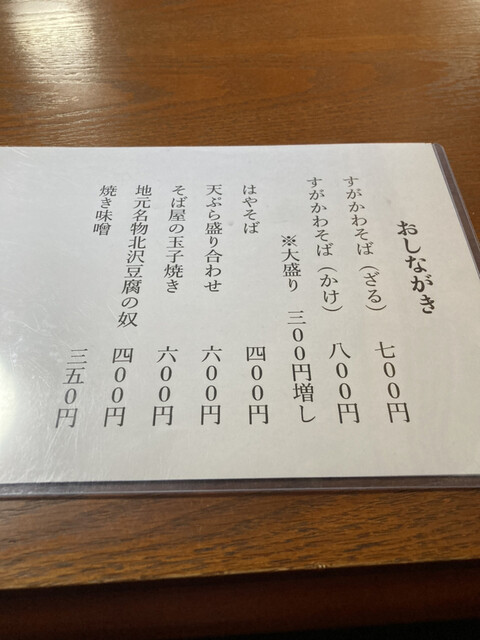 おしながき
すがかわそば（ざる）　七００円
すがかわそば（かけ）　八００円
※大盛り　三００円増し
はやそば　四００円
天ぷら盛り合わせ　六００円
そば屋の玉子焼き　六００円
地元名物北沢豆腐の奴　四００円
焼き味噌　三五０円